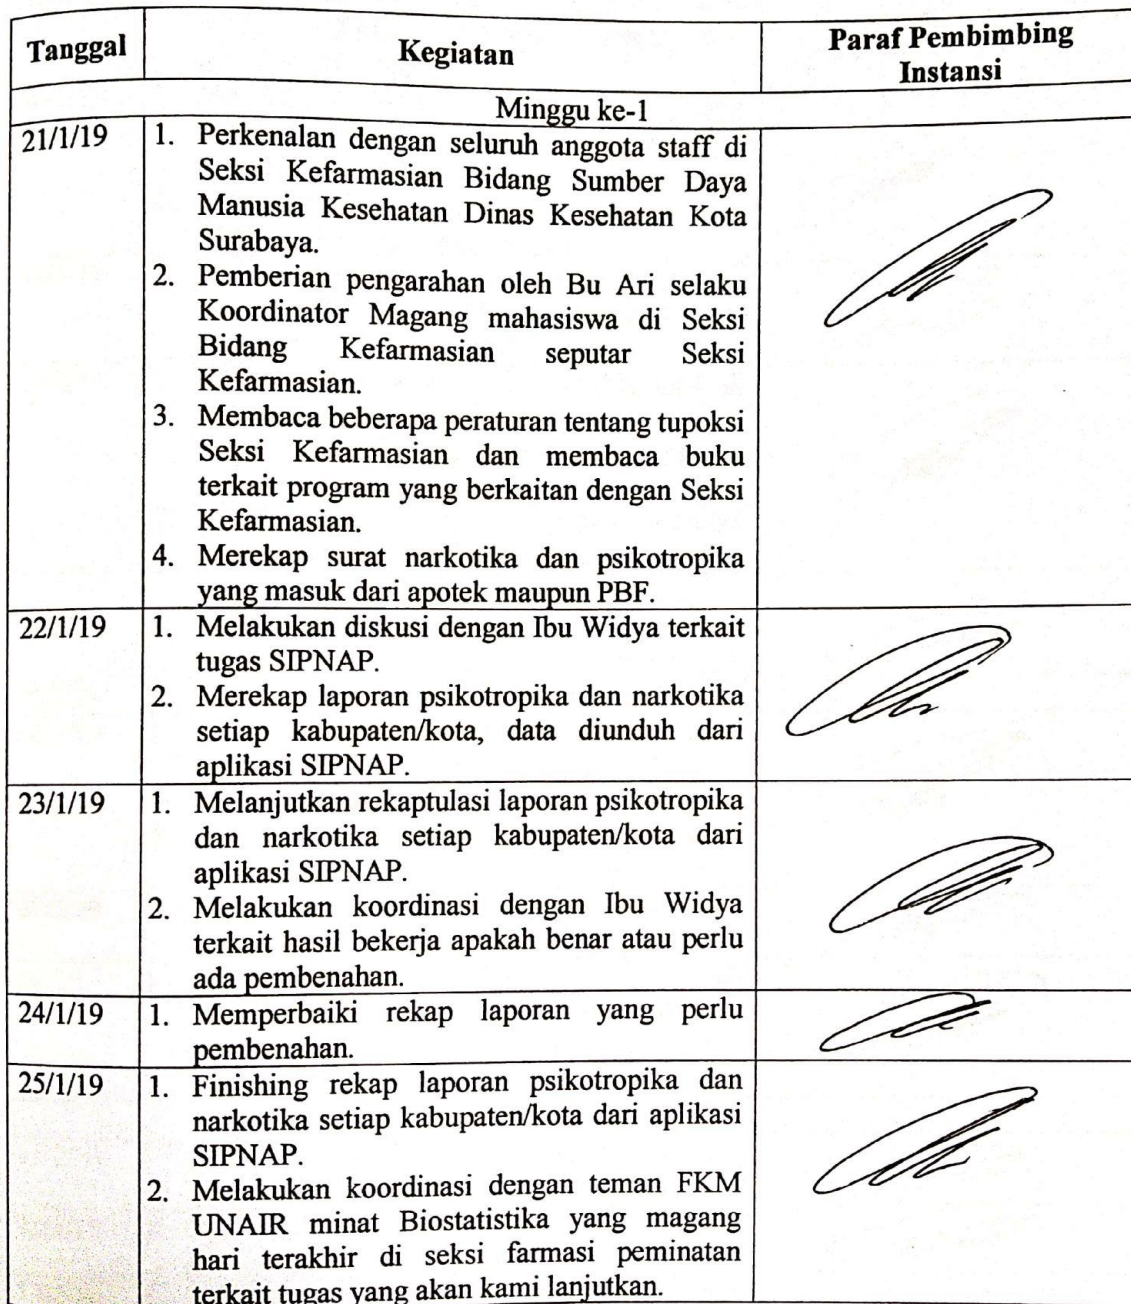 Tanggal
Kegiatan
Paraf Pembimbing
Instansi
Minggu ke-1
21/1/19
1. Perkenalan dengan seluruh anggota staff di
Seksi Kefarmasian Bidang Sumber Daya
Manusia Kesehatan Dinas Kesehatan Kota
Surabaya.
2. Pemberian pengarahan oleh Bu Ari selaku
Koordinator Magang mahasiswa di Seksi
Bidang Kefarmasian seputar Seksi
Kefarmasian.
3. Membaca beberapa peraturan tentang tupoksi
Seksi Kefarmasian dan membaca buku
terkait program yang berkaitan dengan Seksi
Kefarmasian.
4. Merekap surat narkotika dan psikotropika
yang masuk dari apotek maupun PBF.
22/1/19
1. Melakukan diskusi dengan Ibu Widya terkait
tugas SIPNAP.
2. Merekap laporan psikotropika dan narkotika
setiap kabupaten/kota, data diunduh dari
aplikasi SIPNAP.
23/1/19
1. Melanjutkan rekaptulasi laporan psikotropika
dan narkotika setiap kabupaten/kota dari
aplikasi SIPNAP.
2. Melakukan koordinasi dengan Ibu Widya
terkait hasil bekerja apakah benar atau perlu
ada pembenahan.
24/1/19
1. Memperbaiki rekap laporan yang perlu
pembenahan.
25/1/19
1. Finishing rekap laporan psikotropika dan
narkotika setiap kabupaten/kota dari aplikasi
SIPNAP.
2. Melakukan koordinasi dengan teman FKM
UNAIR minat Biostatistika yang magang
hari terakhir di seksi farmasi peminatan
terkait tugas yang akan kami lanjutkan.